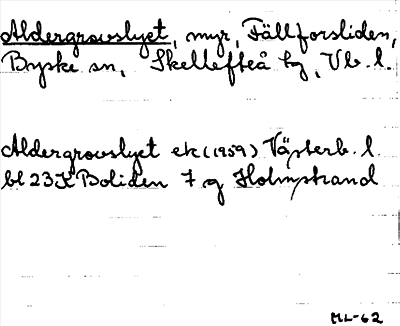 Aldergrovslyet, myr, Fällforsliden,
Byske sn, Skellefteå tg, Vb. l.
Aldergrovslyet ek (1959) Västerb. l.
bl 23K Boliden 7 g Holmstrand
ML-62